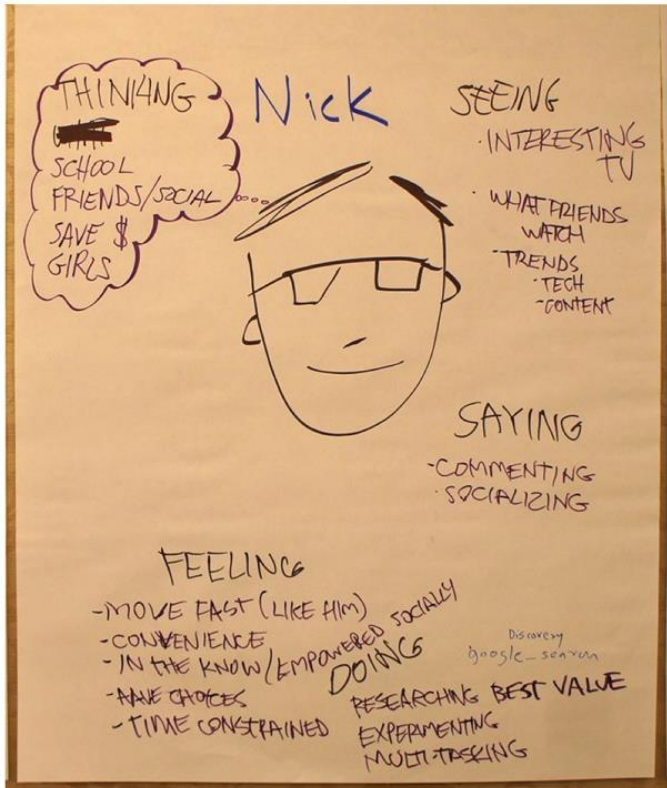 THINKING
SCHOOL
FRIENDS/SOCIAL
SAVE $
GIRLS
Nick
SEEING
· INTERESTING
TV
· WHAT FRIENDS
WATCH
· TRENDS
· TECH
- CONTENT
SAYING
- COMMENTING
· SOCIALIZING
FEELING
- MOVE FAST (LIKE HIM)
- CONVENIENCE
- IN THE KNOW/EMPOWERED SOCIALLY
- HAVE CHOICES
- TIME CONSTRAINED
DOING
Discovery
google_search
RESEARCHING BEST VALUE
EXPERIMENTING
MULTI-TASKING